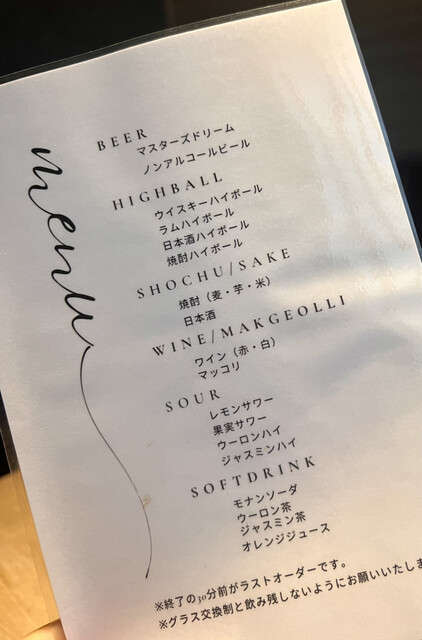 menu
BEER
マスターズドリーム
ノンアルコールビール
HIGHBALL
ウイスキーハイボール
ラムハイボール
日本酒ハイボール
焼酎ハイボール
SHOCHU/SAKE
焼酎（麦・芋・米）
日本酒
WINE/MAKGEOLLI
ワイン（赤・白）
マッコリ
SOUR
レモンサワー
果実サワー
ウーロンハイ
ジャスミンハイ
SOFTDRINK
モナンソーダ
ウーロン茶
ジャスミン茶
オレンジジュース
※終了の30分前がラストオーダーです。
※グラス交換制と飲み残しないようにお願いいたしま